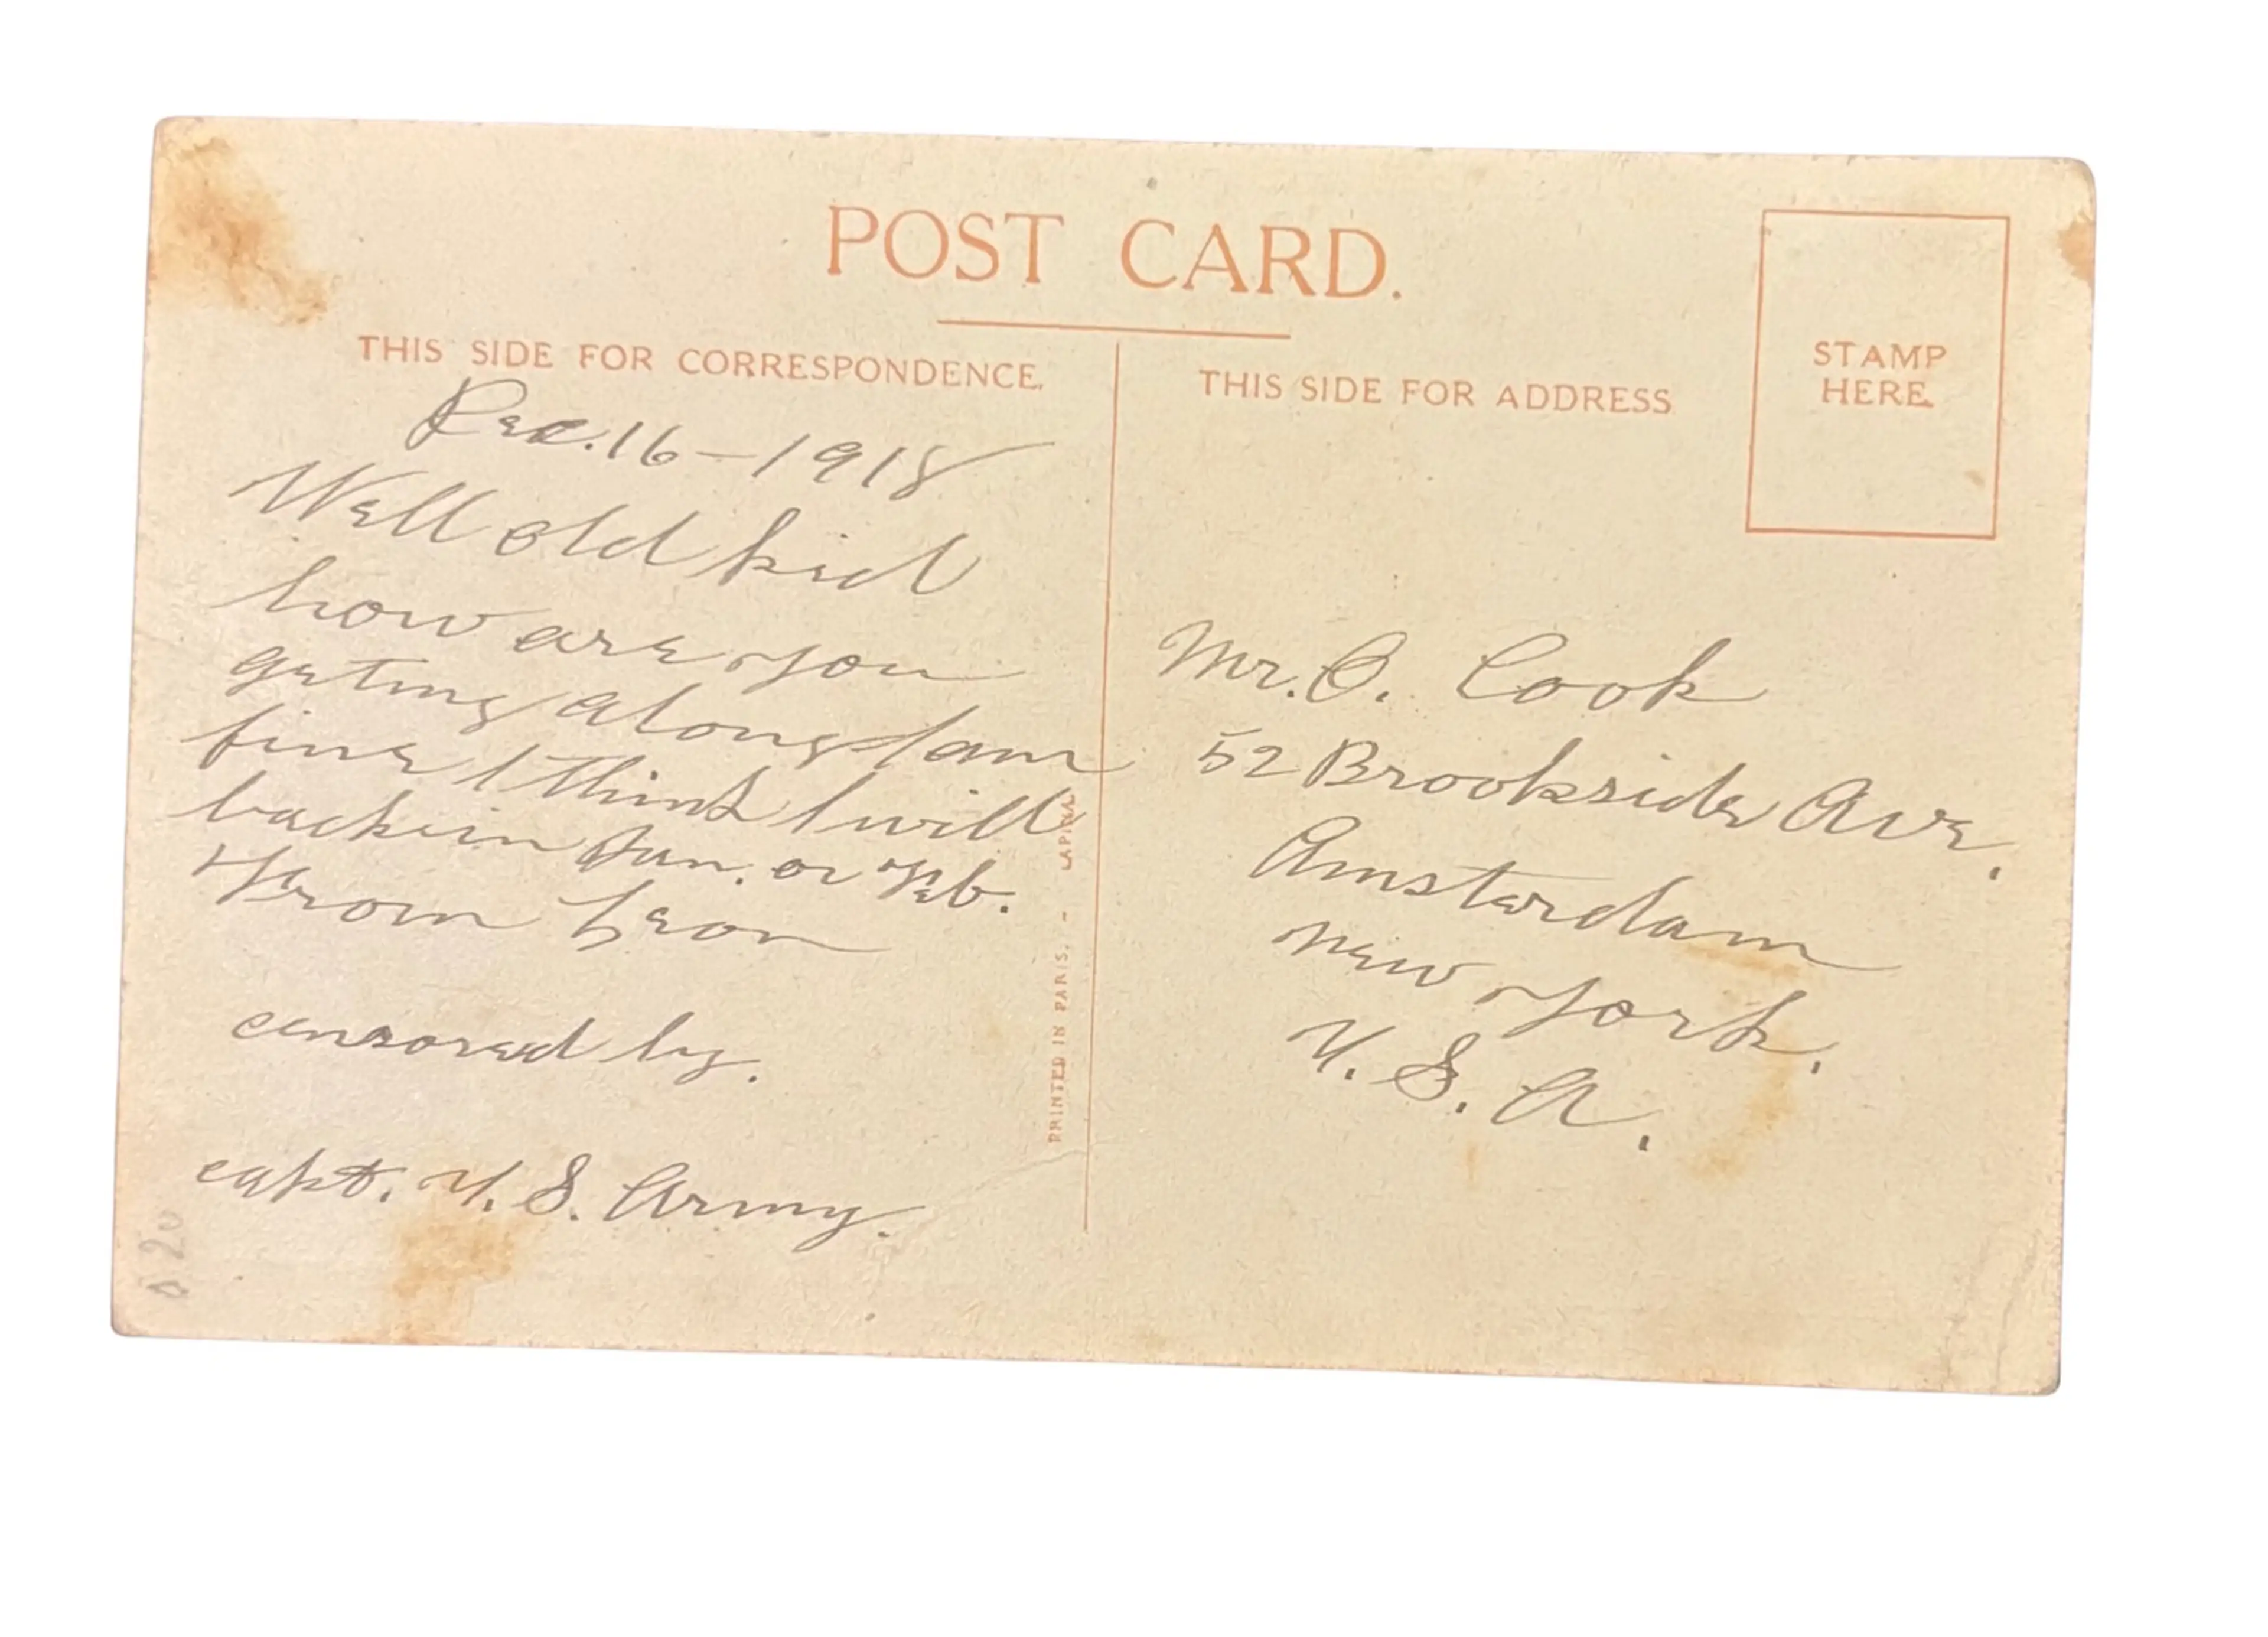 POST CARD.
THIS SIDE FOR CORRESPONDENCE.
Dec. 16 - 1918
Well old kid
how are you
geting along I am
fine I think I will
back in Jan. or Feb.
From Leon
censored by.
capt. U. S. Army.
PRINTED IN PARIS. - LAPINA
THIS SIDE FOR ADDRESS
STAMP
HERE.
Mr. O. Cook
52 Brookside Ave.
Amsterdam
New York.
U. S. A.